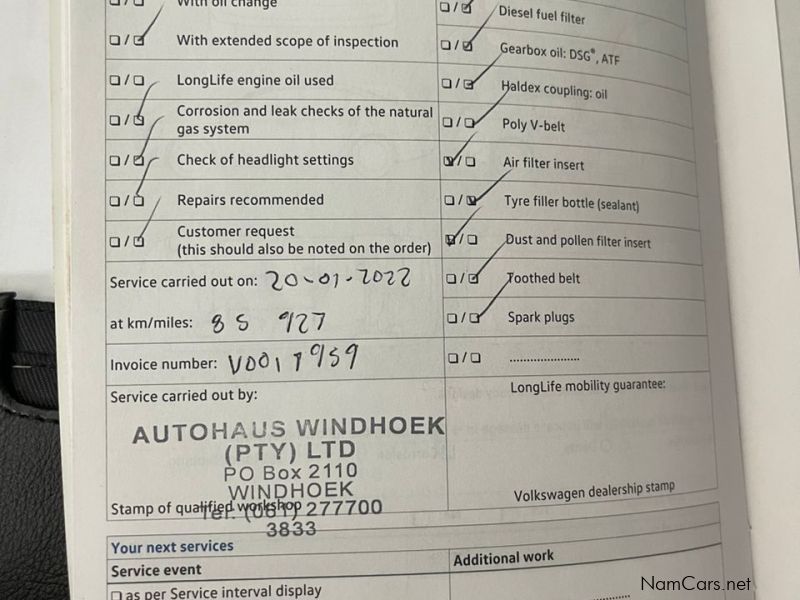 With oil change
With extended scope of inspection
LongLife engine oil used
Corrosion and leak checks of the natural
gas system
Check of headlight settings
Repairs recommended
Customer request
(this should also be noted on the order)
Service carried out on: 20-01-2022
at km/miles: 85 927
Invoice number: V0011959
Service carried out by:
AUTOHAUS WINDHOEK
(PTY) LTD
PO Box 2110
WINDHOEK
Stamp of qualified workshop
Tel: (061) 277700
3833
Diesel fuel filter
Gearbox oil: DSG®, ATF
Haldex coupling: oil
Poly V-belt
Air filter insert
Tyre filler bottle (sealant)
Dust and pollen filter insert
Toothed belt
Spark plugs
LongLife mobility guarantee:
Volkswagen dealership stamp
Your next services
Service event
Additional work
as per Service interval display
NamCars.net